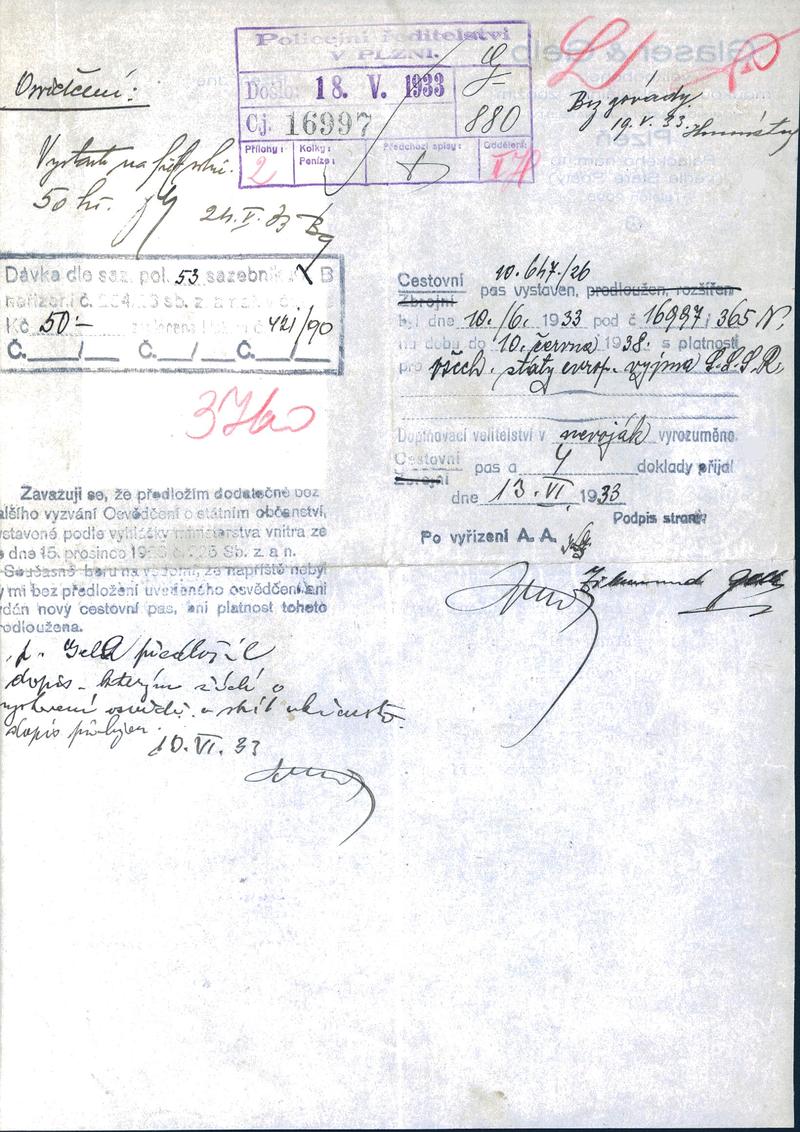 Policejní ředitelství
V PLZNI.
Došlo: 18. V. 1933
Čj. 16997
880
Přílohy: 2
Kolky:
Peníze:
Předchozí spisy:
Oddělení:
Osvědčení:
Bez závady.
19. V. 33.
50 kč.
24. V. 33
Dávka dle saz. pol. 53 sazebník B
nařízení č.
Kč 50.- 421/90
Č.____/____ Č.____/____ Č.____/____
3760
Cestovní 10.647/26
Zbrojní pas vystaven, predloužen, rozšířen
byl dne 10./6. 1933 pod č 16997 365 N.
na dobu do 10. června 1938. s platností
pro všech. státy evrop. vyjma S.S.S.R.
Doplňovací velitelství v nevoják vyrozuměno.
Cestovní
Zbrojní pas a 4 doklady přijal
dne 13. VI. 1933
Podpis strany:
Po vyřízení A. A.
Zavazuji se, že předložím dodatečně bez
alšího vyzvání Osvědčení o státním občanství,
ystavené podle vyhlášky ministerstva vnitra ze
dne 15. prosince Sb. z. a n.
Současně beru na vědomí, že napříště nebyl
mi bez předložení uvedeného osvědčení ani
dán nový cestovní pas, ani platnost tohoto
rodloužena.
p. Gelb předložil
dopis - kterým žádá o
vystavení osvědč. o stát.
dopis
10. VI. 33